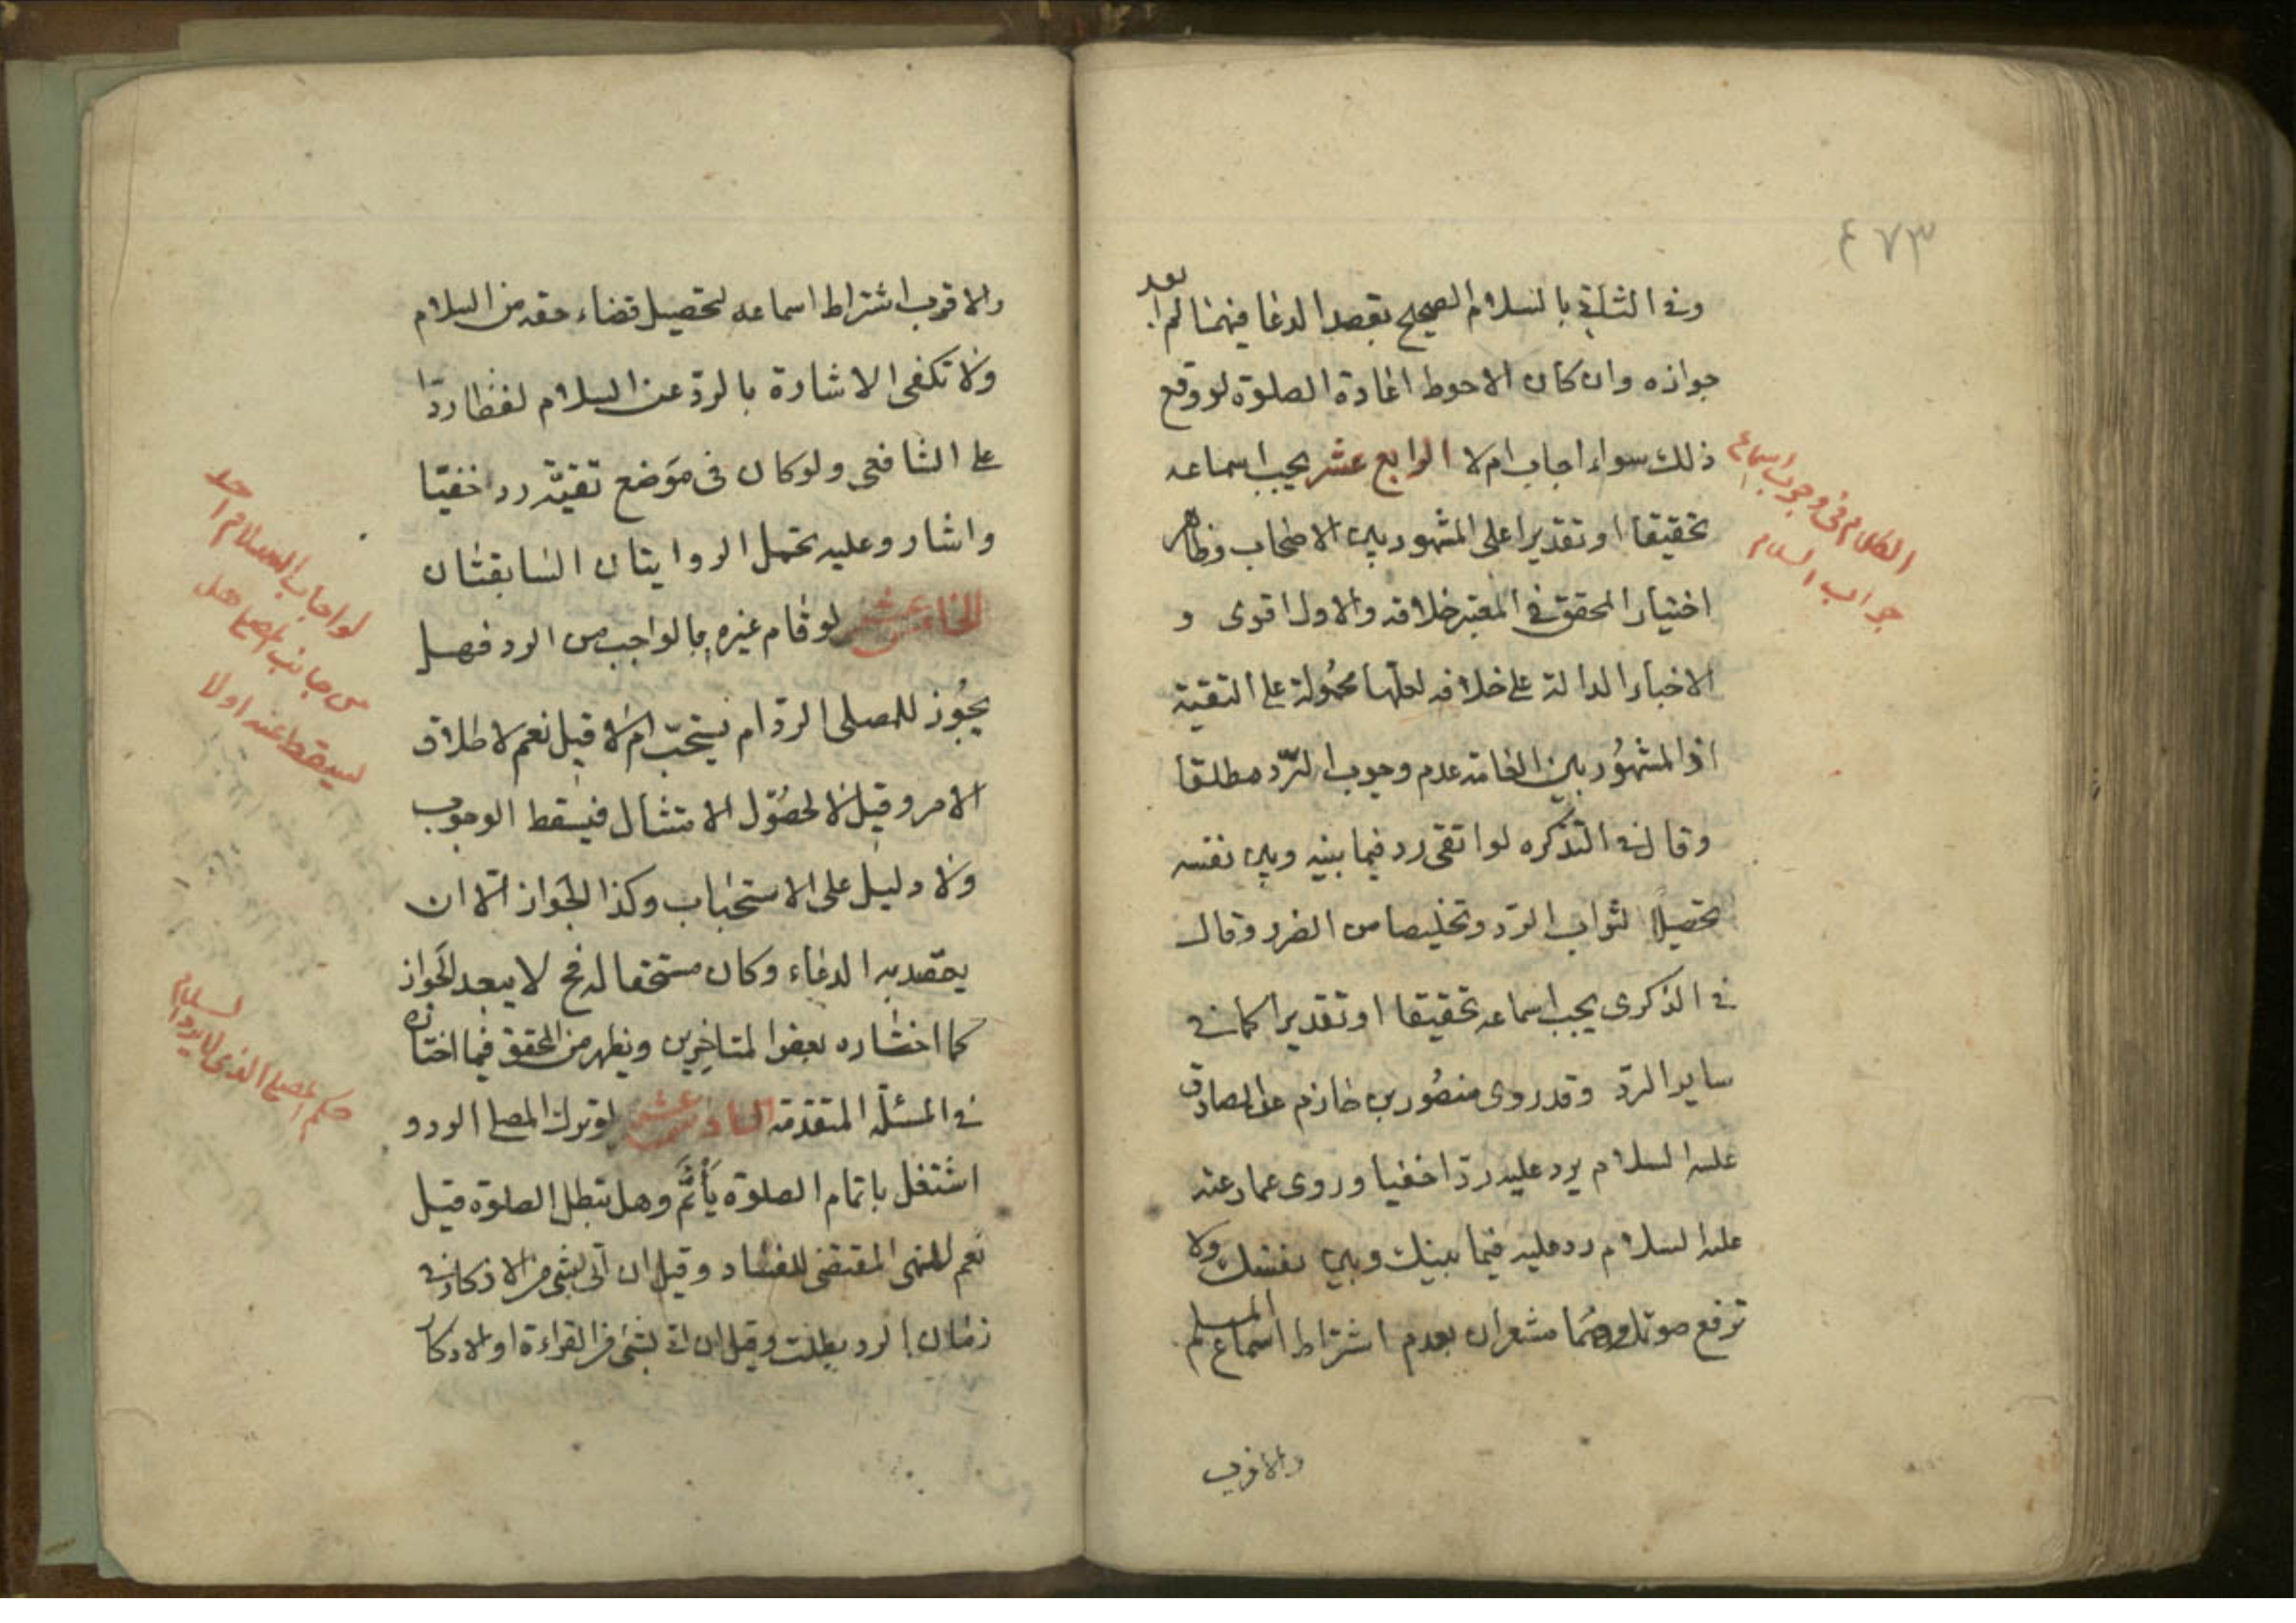 ٤٧٣
وفى الثانية بالسلام الصحيح بقصد الدعا فيهمنا لم ا بعد
جوازه وان كان الاحوط اعادة الصلوة لو وقع
ذلك سواء اجاب ام لا الرابع عشر يجب اسماعه
تحقيقا او تقديرا على المشهور بين الاصحاب وظاهر
اختيار المحقق فى المعتبر خلافه والاول اقوى و
الاخبار الدالة على خلافه لعلها محمولة على التقية
اذ المشهور بين العامة عدم وجوب الرد مطلقا
وقال فى التذكره لو اتقى رد فيما بينه وبين نفسه
تحصيلا لثواب الرد وتخليصا من الضرر وقال
فى الذكرى يجب اسماعه تحقيقا او تقديرا كما فى
ساير الرد وقد روى منصور بن حازم عن الصادق
عليه السلام يرد عليه ردا خفيا وروى عمار عنه
عليه السلام رد عليه فيما بينك وبين نفسك ولا
ترفع صوتك وهما مشعران بعدم اشتراط اسماع المسلم
والاقرب
الكلام فى وجوب اسماع
جواب السلام
والاقرب اشتراط اسماعه لتحصيل قضاء حقه من السلام
ولا تكفى الاشارة بالرد عن السلام لفظا ردا
على الشافعى ولو كان فى موضع تقية رد خفيا
واشار وعليه تحمل الروايتان السابقتان
الخامس عشر لو قام غيره بالواجب من الرد فهل
يجوز للمصلى الرد ام يستحب ام لا قيل نعم لاطلاق
الامر وقيل لا لحصول الامتثال فيسقط الوجوب
ولا دليل على الاستحباب وكذا الجواز الا ان
يقصد به الدعاء وكان مستحقا له فح لا يبعد الجواز
كما اختاره بعض المتاخرين ويظهر من المحقق فيما اختاره
فى المسئلة المتقدمة السادس عشر لو ترك المصلى الرد و
اشتغل باتمام الصلوة يأثم وهل تبطل الصلوة قيل
نعم للنهى المقتضى للفساد وقيل ان اتى بشى من الاذكار فى
زمان الرد بطلت وقيل ان اتى بشئ من القراءة او الاذكار
لو اجاب السلام احد
من جانب المصلى هل
يسقط عنه اولا
حكم المصلى الذى لا يرد السلام